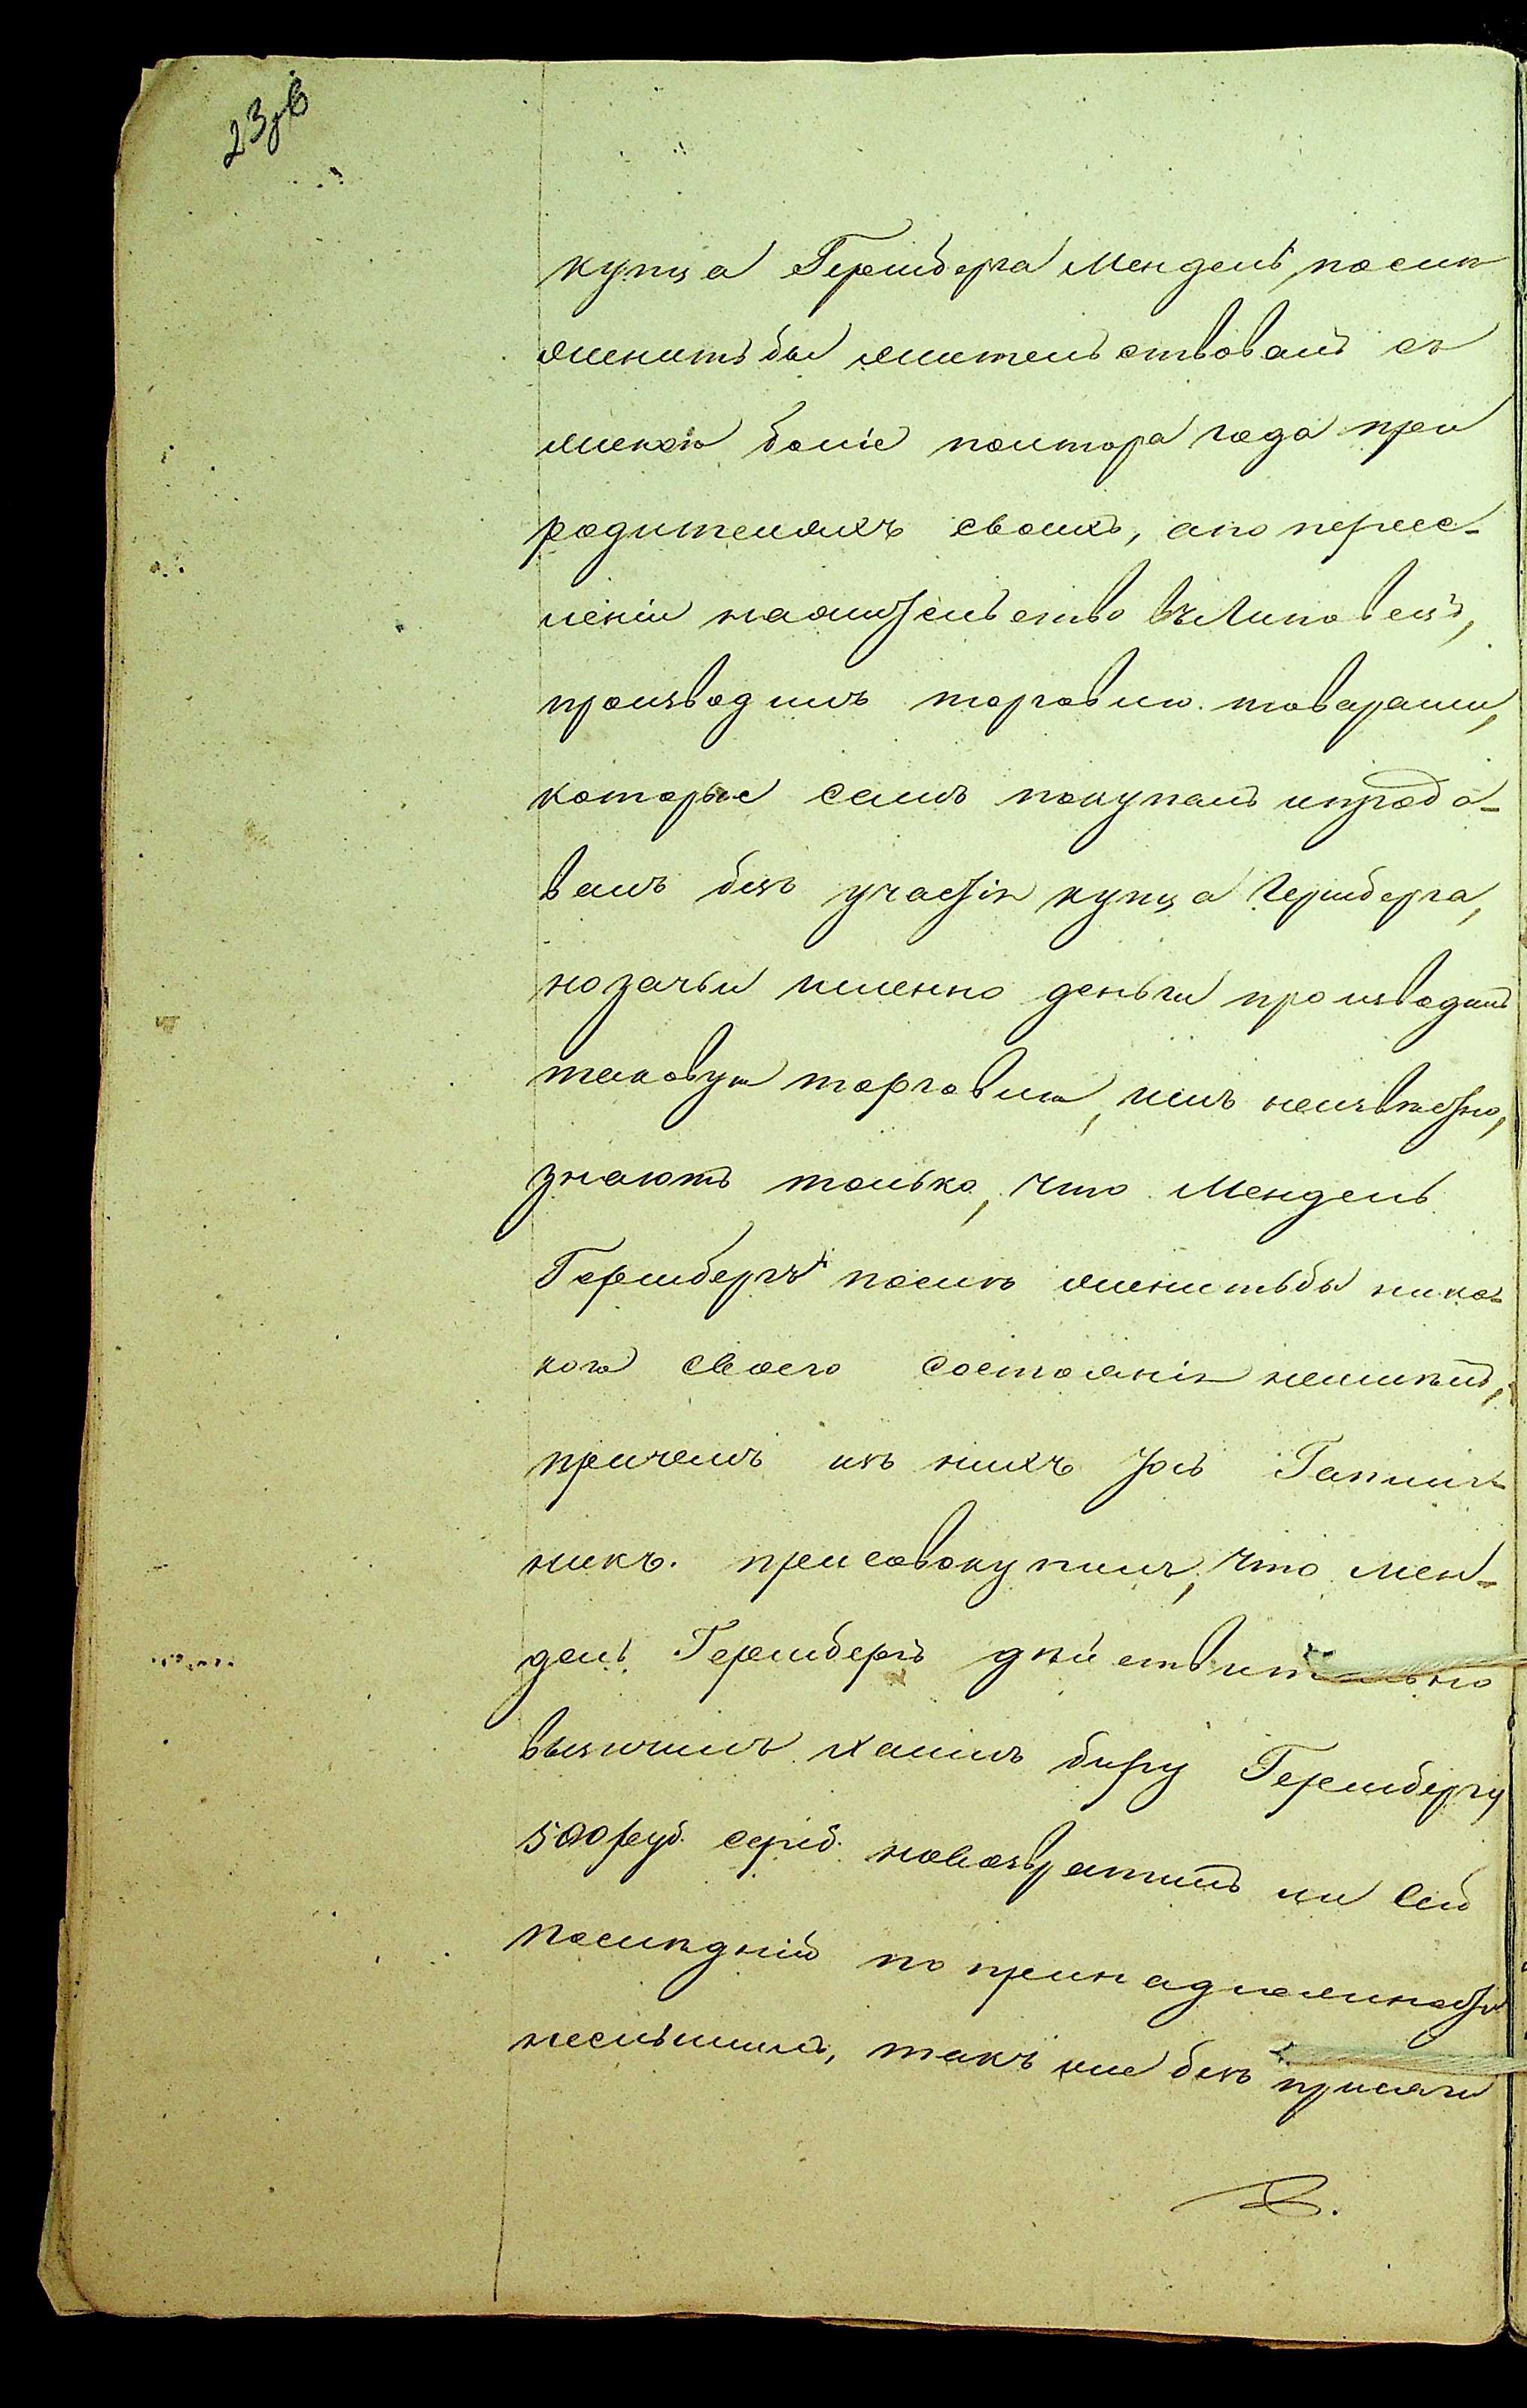 23зв
купца Гершберга Мендель после
женитьбы жительствовалъ съ
женою боліе полтора года при
родителяхъ своихъ, а по пересе-
леніи на жительство въ Липовецъ,
производилъ торговлю товарами,
которые самъ покупалъ и прода-
валъ безъ участія купца Гершберга,
но за чьи именно деньги производилъ
таковую торговлю, имъ неизвѣстно,
знаютъ только, что Мендель
Гершбергъ послѣ женитьбы ника-
кого своего состоянія неимѣлъ,
причемъ изъ нихъ Іось
никъ. присовокупилъ, что Мен-
дель Гершбергъ дѣйствительно
вызычилъ Хаимъ Гершбергу
500 руб. сереб. но возвратилъ ли сей
послѣдній по принадлежности
неслышалъ, такъ же безъ присяги